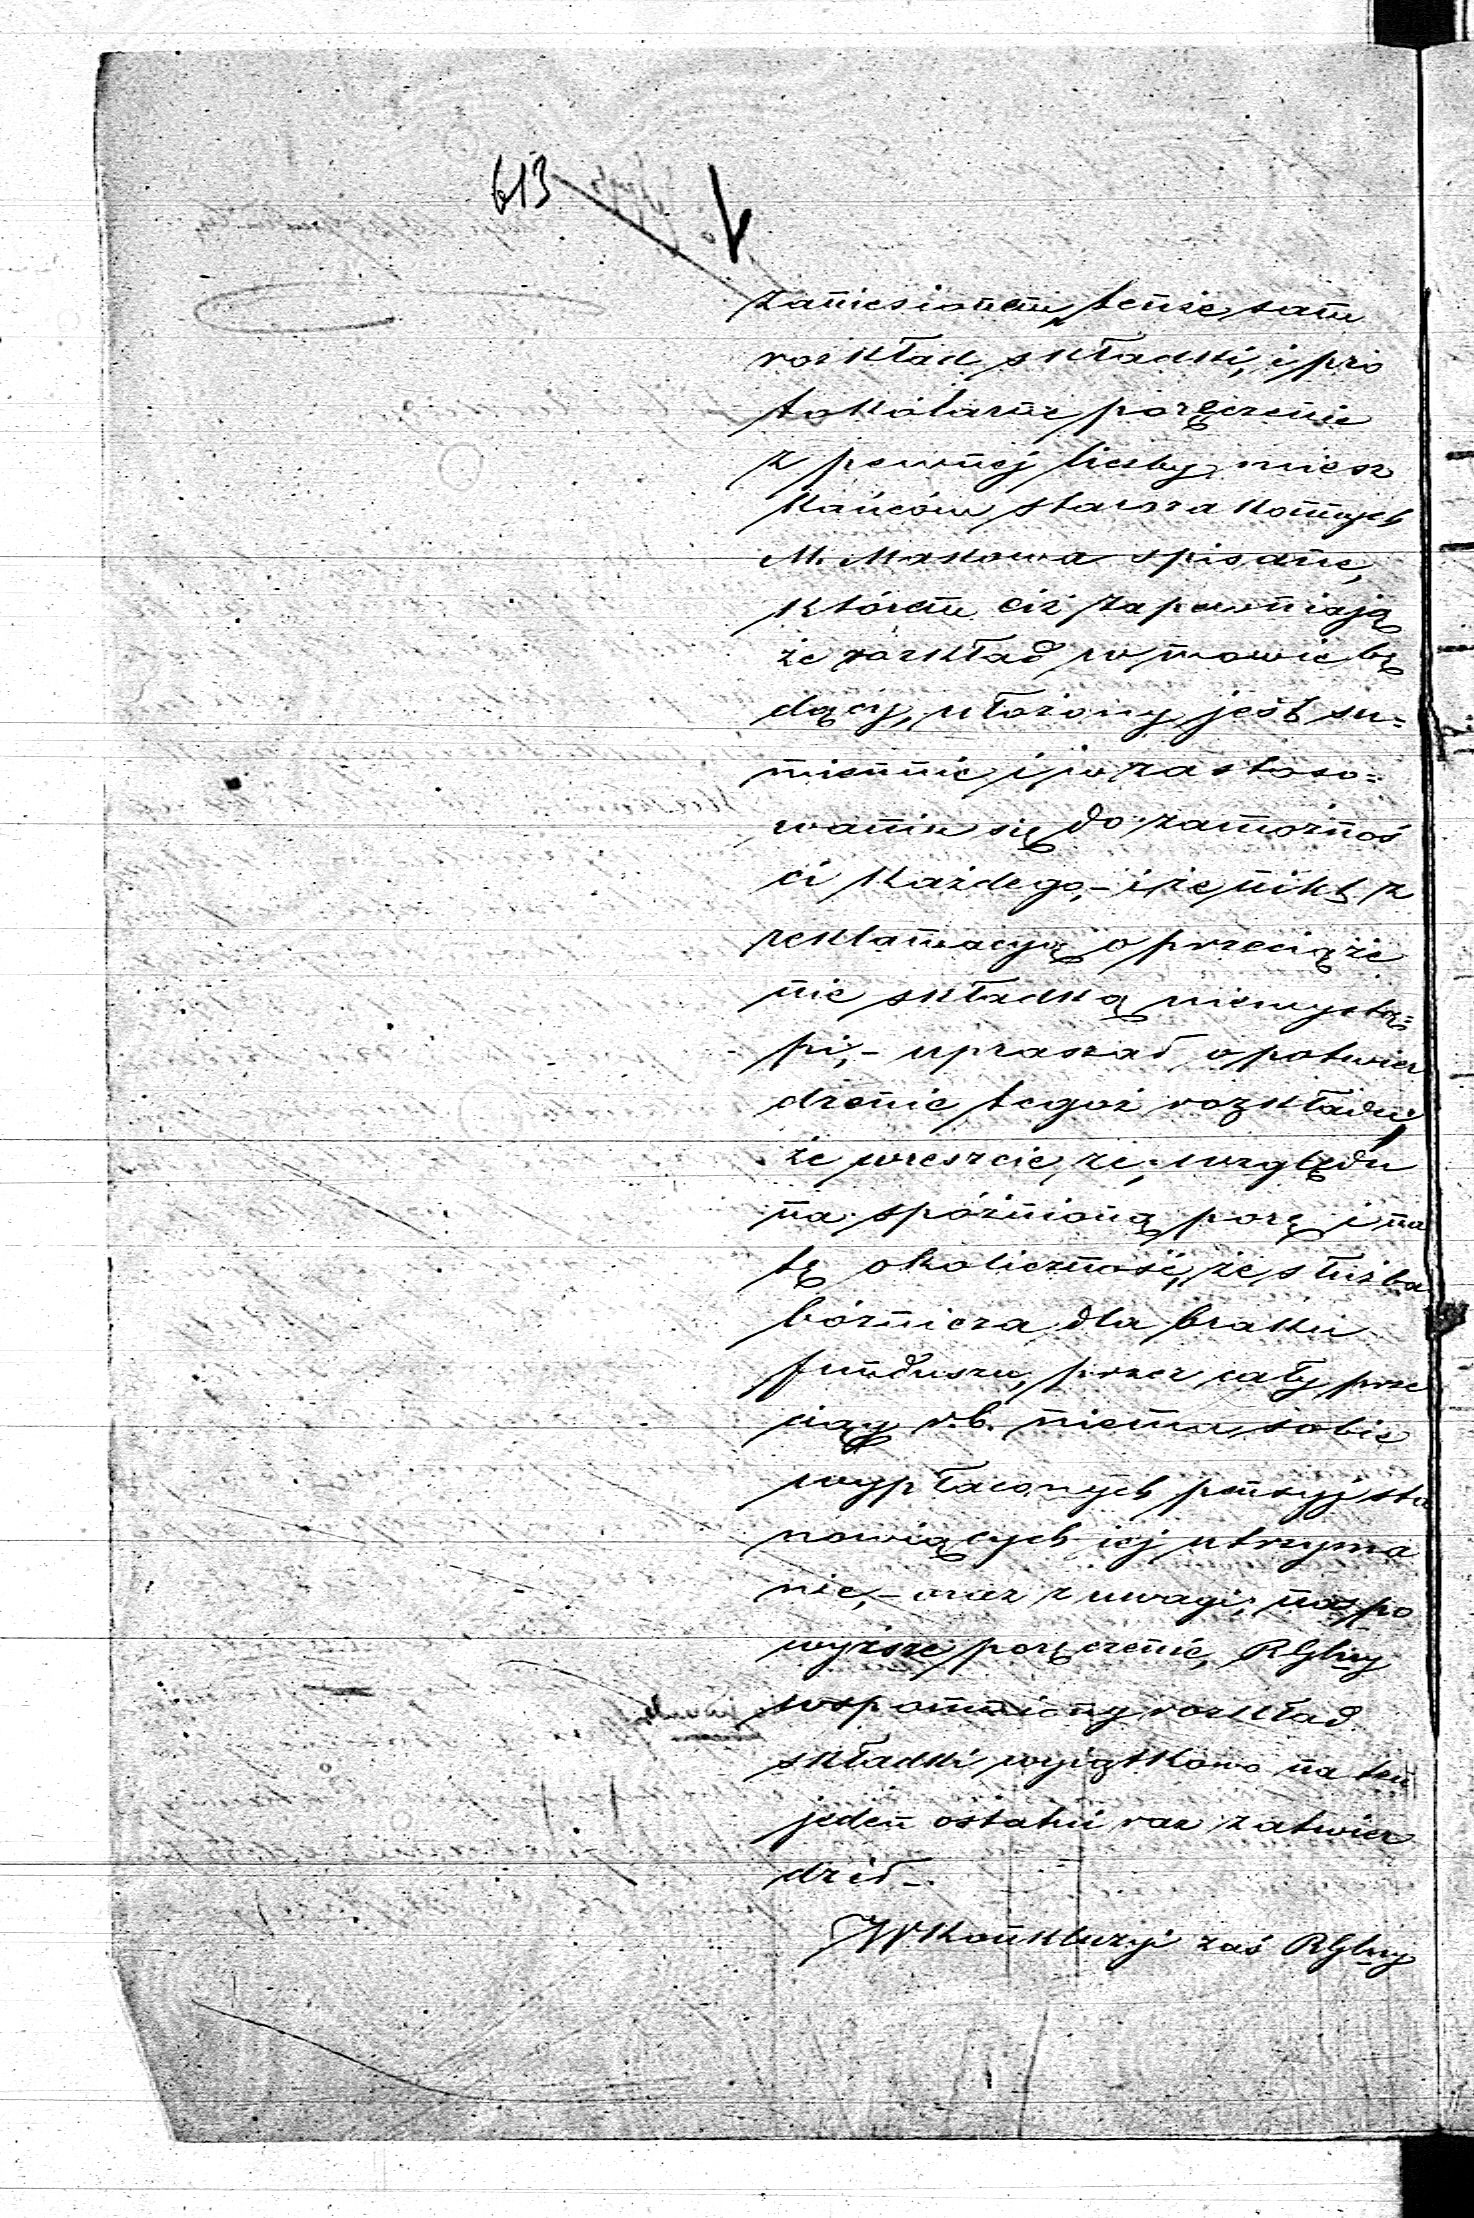 613
zaniesionem, tenże sam
rozkład składki, i pro
tokólarne poręczenie
z pewnej liczby miesz
kańców starozakonnych
M. Makowa spisane,
którem ciż zapewniają
że rozkład w mowie bę
dący, ułożony jest su=
miennie i w zastoso=
waniu się do zamożnoś
ci każdego,- i że nikt z
reklamacyą o przeciąże
nie składką niewystą=
pi,- upraszać o potwier
dzenie tegoż rozkładu,
że wreszcie, ze względu
na spóźnioną porę i na
tę okoliczność, że służba
bóźnicza dla braku
funduszu, przez cały prze
ciąg r.b. niema sobie
wypłaconych pensyj sta
nowiących jej utrzyma
nie,- oraz z uwagi, na po
wyższe poręczenie, RGlny
wspomniony rozkład
składki wyjątkowo na ten
jeden ostatni raz zatwier
dził -
W konkluzyi zaś RGlny